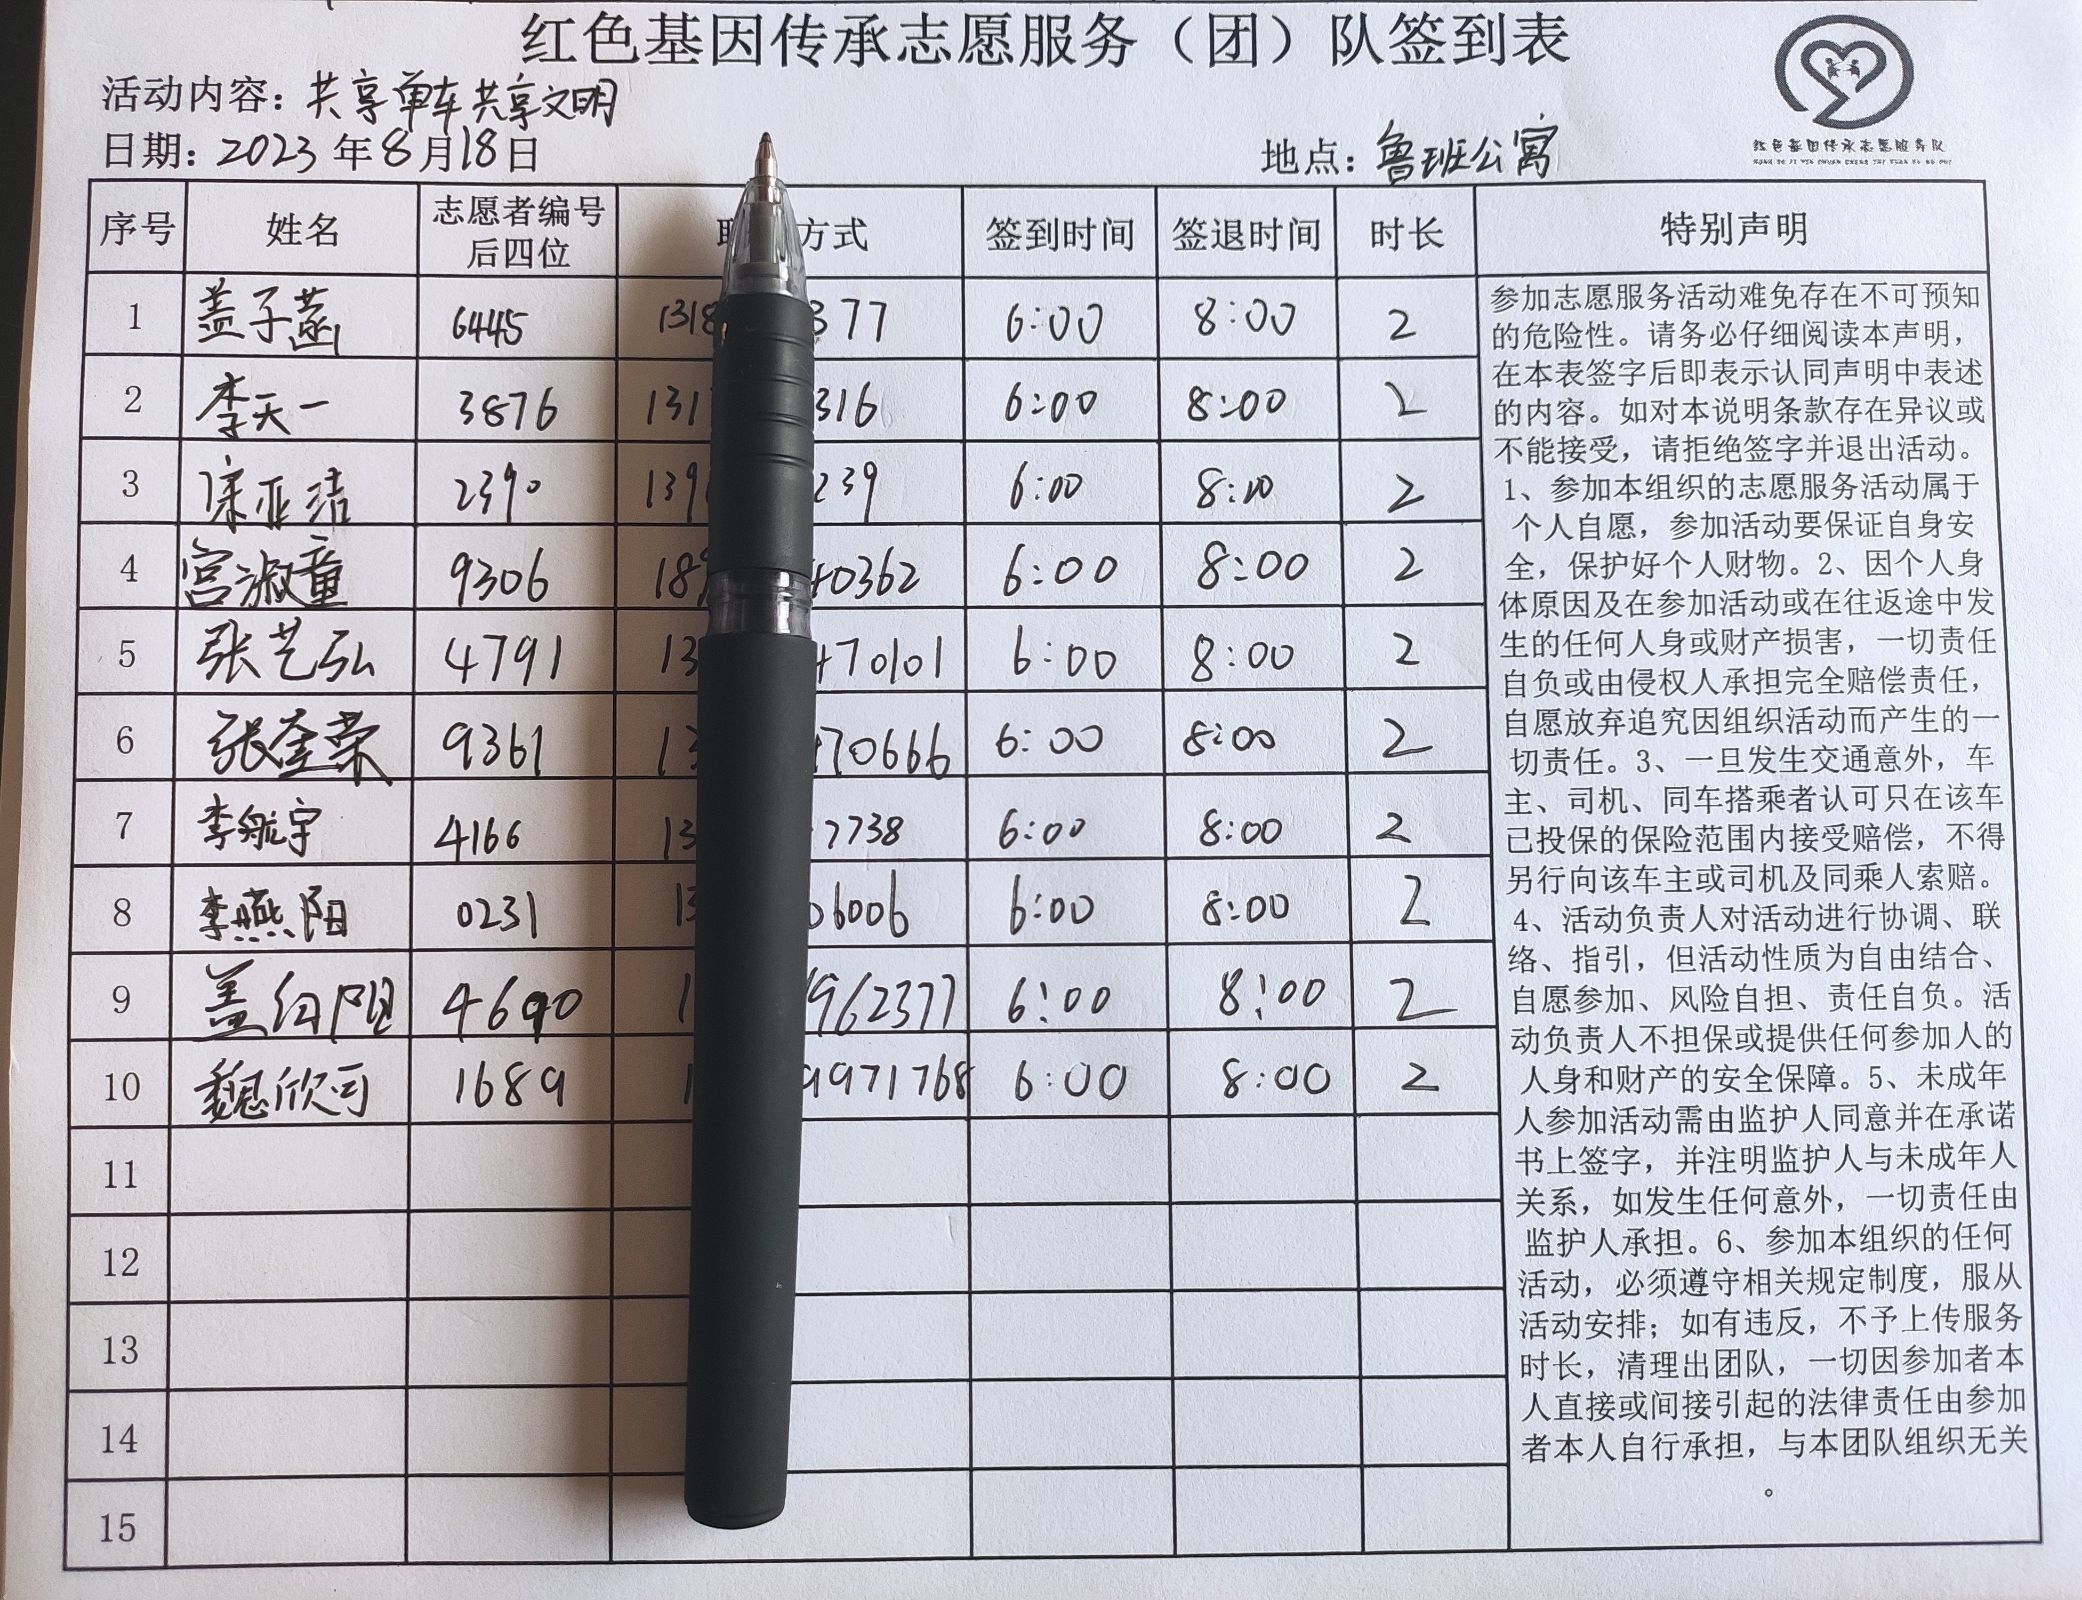 红色基因传承志愿服务（团）队签到表
活动内容：共享单车共享文明
日期：2023年8月18日
地点：鲁班公寓
红色基因传承志愿服务队
序号 姓名 志愿者编号后四位 方式 签到时间 签退时间 时长 特别声明
1 盖子菡 6445 1318 377 6:00 8:00 2
2 李天一 3876 131 316 6:00 8:00 2
3 亚洁 2390 139 239 6:00 8:00 2
4 宫淑童 9306 189 40362 6:00 8:00 2
5 张艺弘 4791 13 470101 6:00 8:00 2
6 张奎荣 9361 13 470666 6:00 8:00 2
7 李航宇 4166 13 7738 6:00 8:00 2
8 李燕阳 0231 13 06006 6:00 8:00 2
9 盖 阳 4690 1 962377 6:00 8:00 2
10 魏欣可 1689 1 9971768 6:00 8:00 2
11
12
13
14
15
参加志愿服务活动难免存在不可预知
的危险性。请务必仔细阅读本声明，
在本表签字后即表示认同声明中表述
的内容。如对本说明条款存在异议或
不能接受，请拒绝签字并退出活动。
1、参加本组织的志愿服务活动属于
个人自愿，参加活动要保证自身安
全，保护好个人财物。2、因个人身
体原因及在参加活动或在往返途中发
生的任何人身或财产损害，一切责任
自负或由侵权人承担完全赔偿责任，
自愿放弃追究因组织活动而产生的一
切责任。3、一旦发生交通意外，车
主、司机、同车搭乘者认可只在该车
已投保的保险范围内接受赔偿，不得
另行向该车主或司机及同乘人索赔。
4、活动负责人对活动进行协调、联
络、指引，但活动性质为自由结合、
自愿参加、风险自担、责任自负。活
动负责人不担保或提供任何参加人的
人身和财产的安全保障。5、未成年
人参加活动需由监护人同意并在承诺
书上签字，并注明监护人与未成年人
关系，如发生任何意外，一切责任由
监护人承担。6、参加本组织的任何
活动，必须遵守相关规定制度，服从
活动安排；如有违反，不予上传服务
时长，清理出团队，一切因参加者本
人直接或间接引起的法律责任由参加
者本人自行承担，与本团队组织无关
。